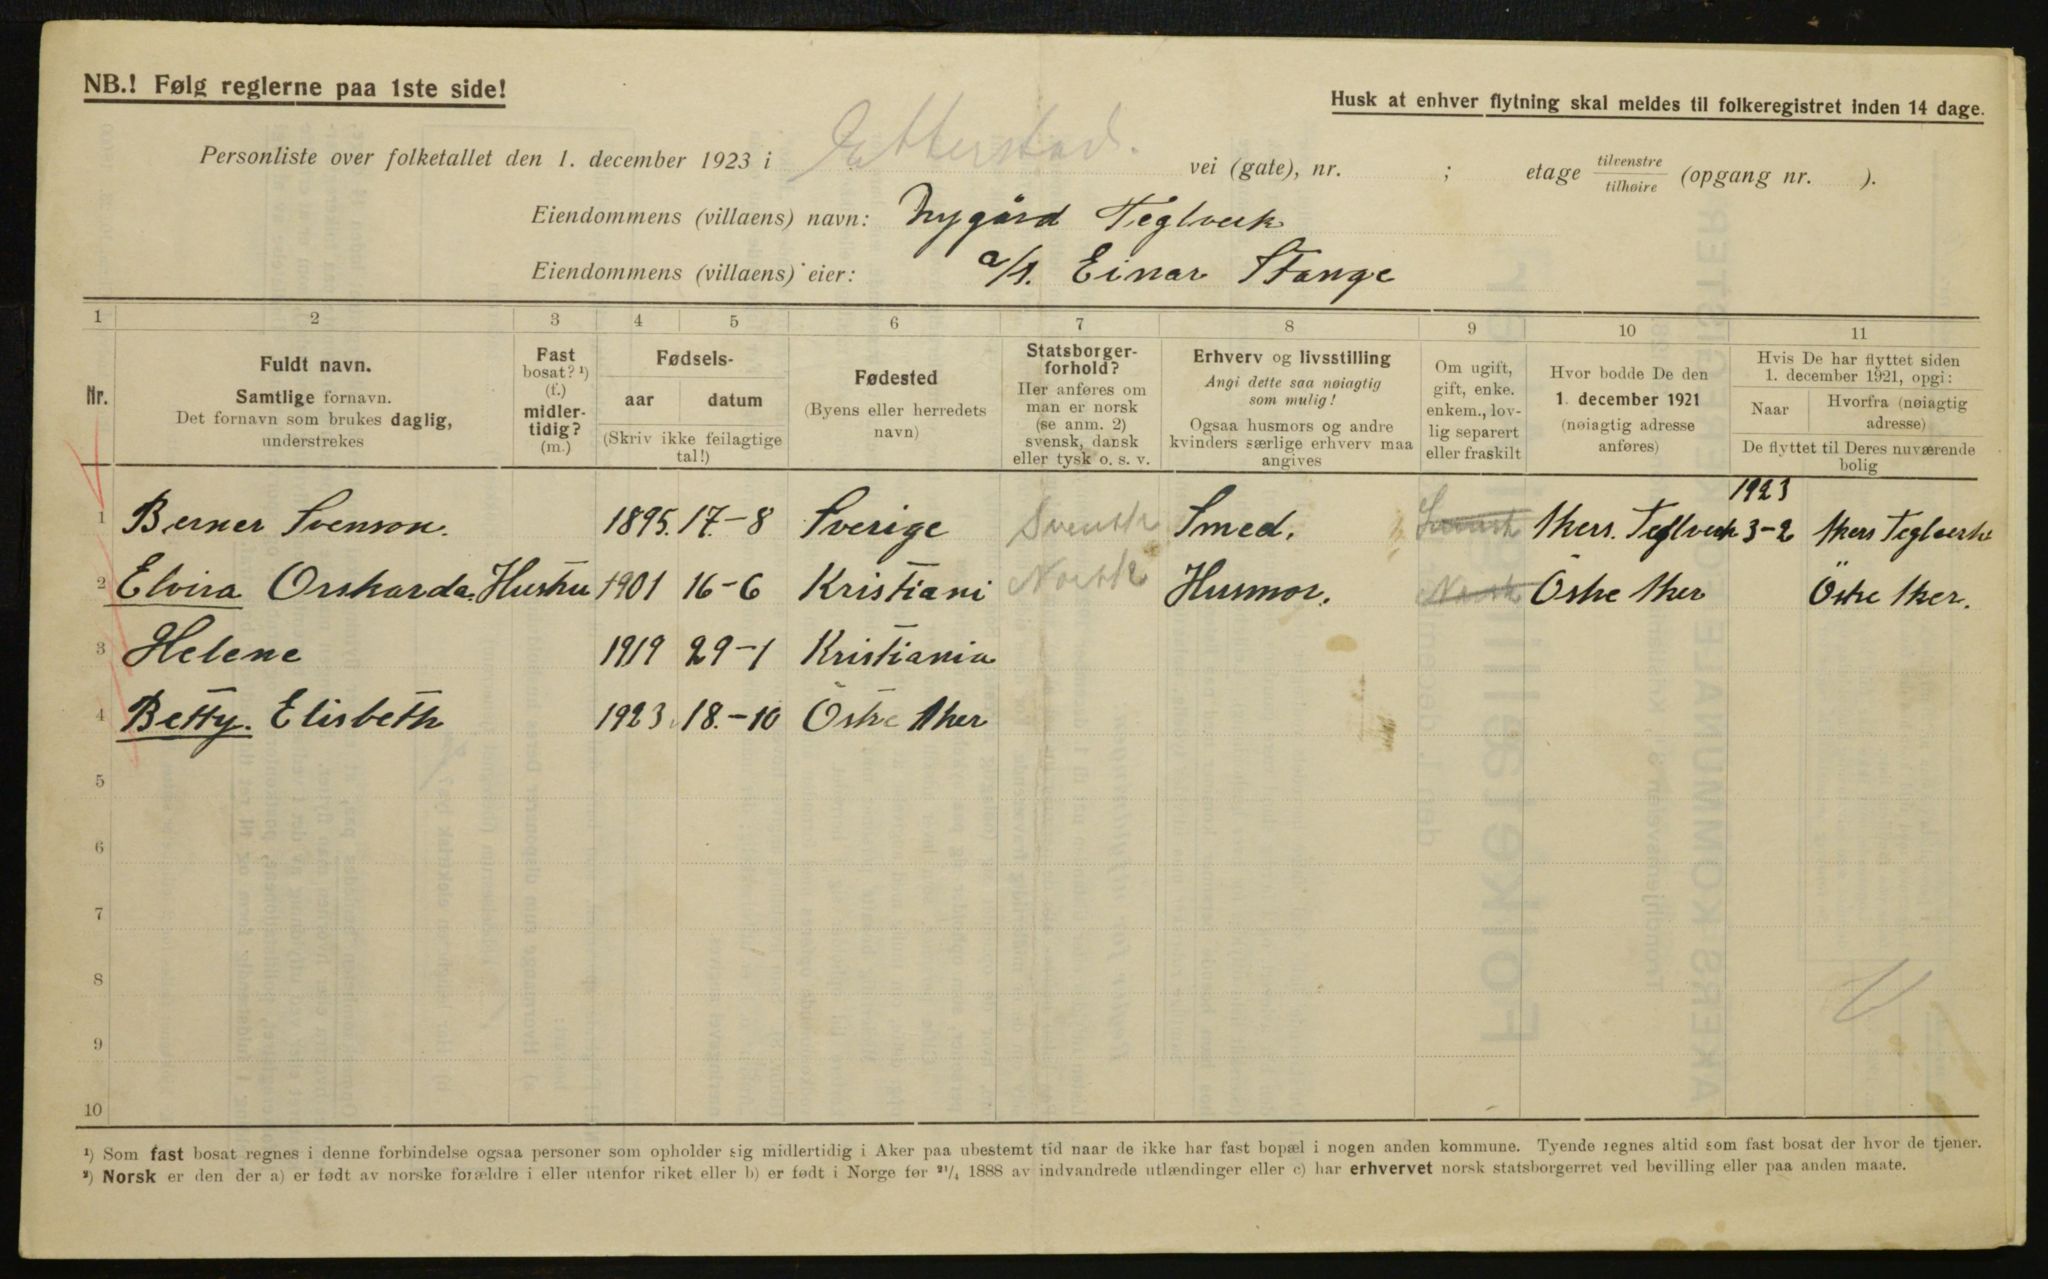 NB.! Følg reglerne paa 1ste side!
Husk at enhver flytning skal meldes til folkeregistret inden 14 dage.
Personliste over folketallet den 1. december 1923 i Etterstad. vei (gate), nr. ; etage tilvenstre/tilhøire (opgang nr. ).
Eiendommens (villaens) navn: Nygård Teglverk
Eiendommens (villaens) eier: a/s. Einar Stange
1 2 3 4 5 6 7 8 9 10 11
Nr.
Fuldt navn.
Samtlige fornavn.
Det fornavn som brukes daglig,
understrekes
Fast
bosat? ¹)
(f.)
midler-
tidig?
(m.)
Fødsels-
aar datum
(Skriv ikke feilagtige
tal!)
Fødested
(Byens eller herredets
navn)
Statsborger-
forhold?
Her anføres om
man er norsk
(se anm. 2)
svensk, dansk
eller tysk o. s. v.
Erhverv og livsstilling
Angi dette saa nøiagtig
som mulig!
Ogsaa husmors og andre
kvinders særlige erhverv maa
angives
Om ugift,
gift, enke.
enkem., lov-
lig separert
eller fraskilt
Hvor bodde De den
1. december 1921
(nøiagtig adresse
anføres)
Hvis De har flyttet siden
1. december 1921, opgi:
Naar
Hvorfra (nøiagtig
adresse)
De flyttet til Deres nuværende
bolig
1923
1 Berner Svenson. 1895. 17.-8 Sverige Svensk Smed. Svensk Akers. Teglverk 3-2 Akers Teglverk
2 Elvira Orskarda. Hustru 1901 16-6 Kristiani Norsk Husmor. Norsk Östre Aker Östre Aker.
3 Helene 1919 29-1 Kristiania
4 Betty. Elisbeth 1923 18.-10 Östre Aker
5
6
7
8
9
10
¹) Som fast bosat regnes i denne forbindelse ogsaa personer som opholder sig midlertidig i Aker paa ubestemt tid naar de ikke har fast bopæl i nogen anden kommune. Tyende regnes altid som fast bosat der hvor de tjener.
²) Norsk er den der a) er født av norske forældre i eller utenfor riket eller b) er født i Norge før ²¹/₄ 1888 av indvandrede utlændinger eller c) har erhvervet norsk statsborgerret ved bevilling eller paa anden maate.